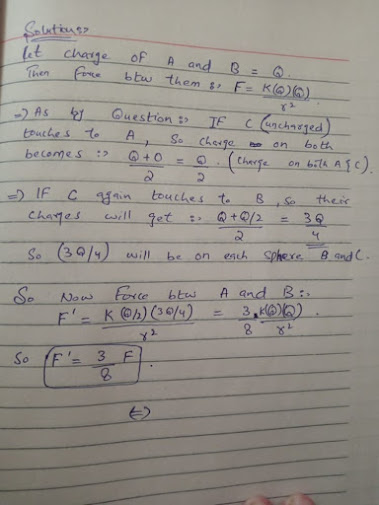 Solution:→
let charge of A and B = Q.
Then force btw them :→ F = K(Q)(Q)/r²
⇒ As by Question :→ IF C (uncharged)
touches to A, So charge on both
becomes :→ Q+0/2 = Q/2 . (charge on both A & C).
⇒ IF C again touches to B, so their
charges will get :→ Q+Q/2/2 = 3Q/4
So (3Q/4) will be on each sphere B and C.
So Now Force btw A and B :→
F' = K(Q/2)(3Q/4)/r² = 3/8 . K(Q)(Q)/r² .
So F' = 3/8 F .